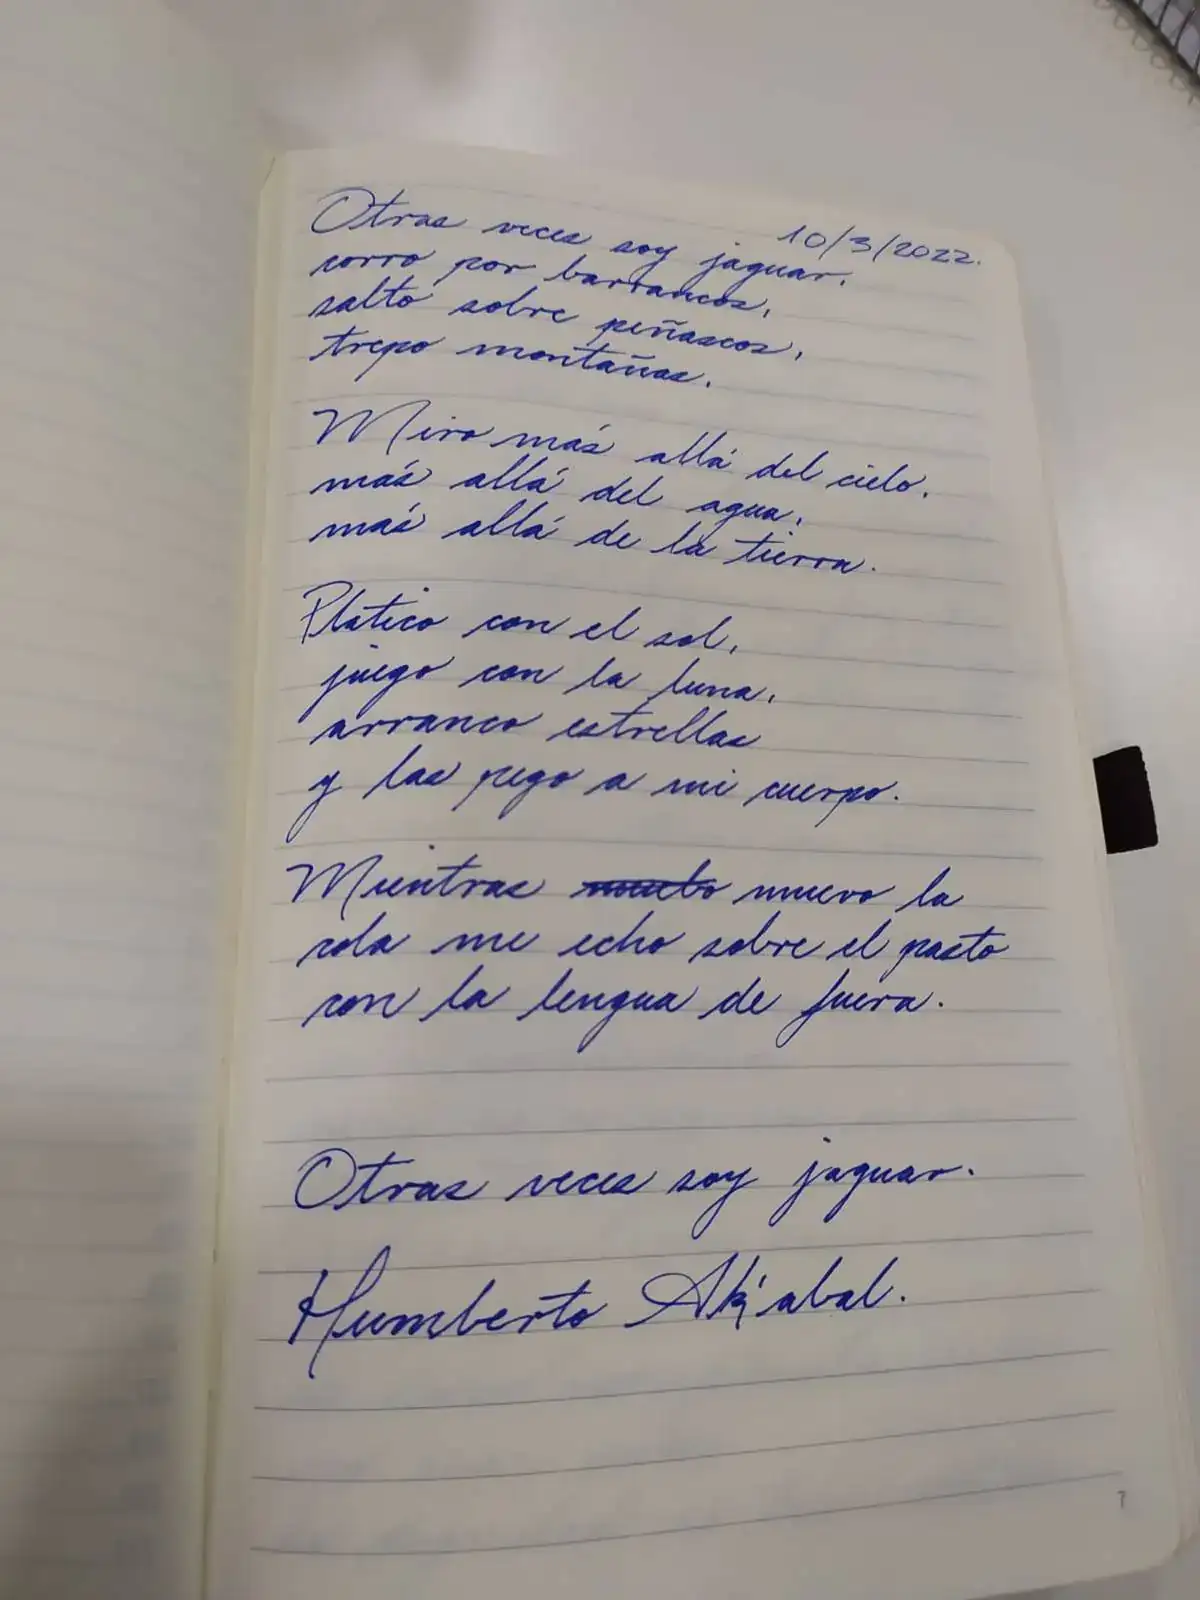 10/3/2022.
Otras veces soy jaguar,
corro por barrancos,
salto sobre peñascos,
trepo montañas.
Miro más allá del cielo,
más allá del agua,
más allá de la tierra.
Platico con el sol,
juego con la luna,
arranco estrellas
y las pego a mi cuerpo.
Mientras muevo la
cola me echo sobre el pasto
con la lengua de fuera.
Otras veces soy jaguar.
Humberto Ak'abal.
7